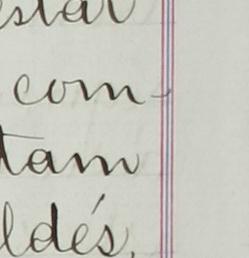 star
com-
tam
ldés,